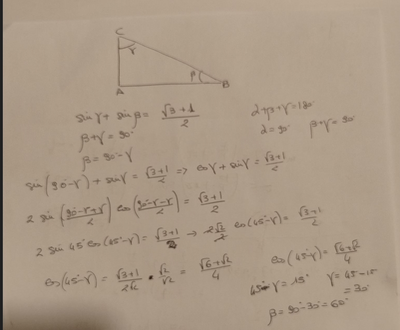 C
γ
β
A
B
sin γ + sin β = √3+1/2
α+β+γ=180°
β+γ=90°
α=90°
β+γ=90
β=90°-γ
sin(90°-γ)+sin γ = √3+1/2 => cos γ + sin γ = √3+1/2
2 sin(90°-γ+γ/2) cos(90°-γ-γ/2) = √3+1/2
2 sin 45° cos(45°-γ) = √3+1/2 → 2√2/2 cos(45°-γ) = √3+1/2
cos(45°-γ) = √3+1/2√2 · √2/√2 = √6+√2/4
cos(45°-γ) = √6+√2/4
45°-γ=15°
γ=45-15
=30°
β=90°-30°=60°